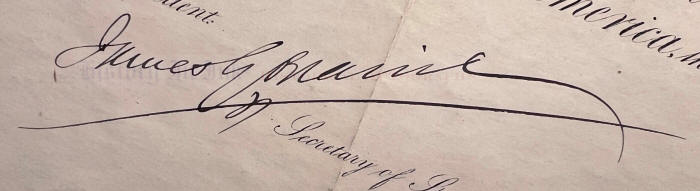 ident.
merica,
James G Blaine
Secretary of S